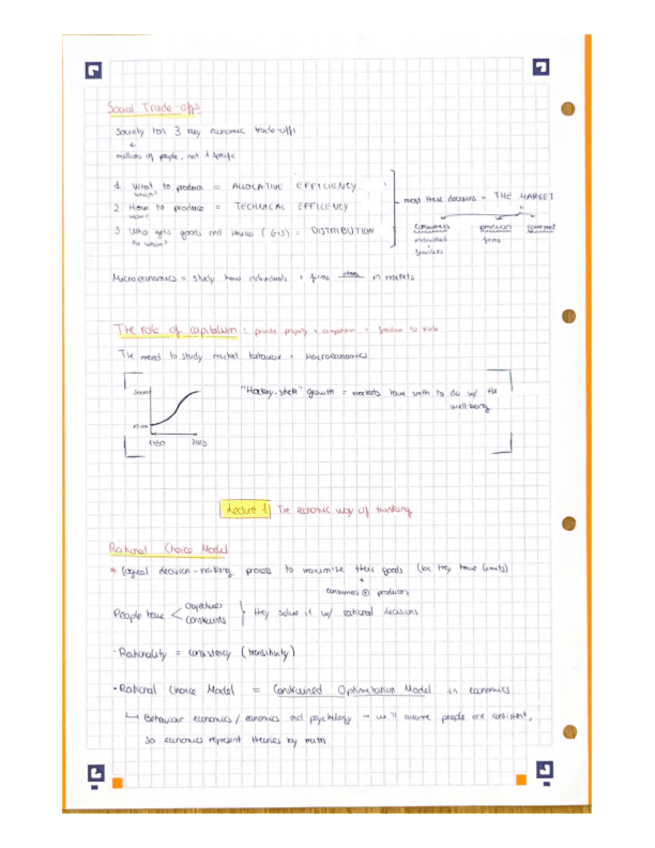 Social Trade-offs
Society has 3 key economic trade-offs
millions of people, not 1 specific
1 What to produce = ALLOCATIVE EFFICIENCY
which?
2 How to produce = TECHNICAL EFFICENCY
3 Who gets goods and (G+S) = DISTRIBUTION
for whom?
most these decisions = THE MARKET
consumers producers government
individuals firms
families
Microeconomics = study how individuals + firms in markets
The role of capitalism : private property + competition + freedom to trade
The need to study market behaviour =
1450 2023
"Hockey-stick" growth = markets have smth to do w/ the
well-being
Lecture 1 The economic way of thinking
Rational Choice Model
* logical decision-making process to maximise their goods (bc they have limits)
consumers producers
People have < Objectives
Constraints
they solve it w/ rational decisions
· Rationality = consistency (transitivity)
· Rational Choice Model = Constrained Optimization Model in economics
Behaviour economics / economics and psychology → we'll assume people are consistent,
so economics represent theories by math